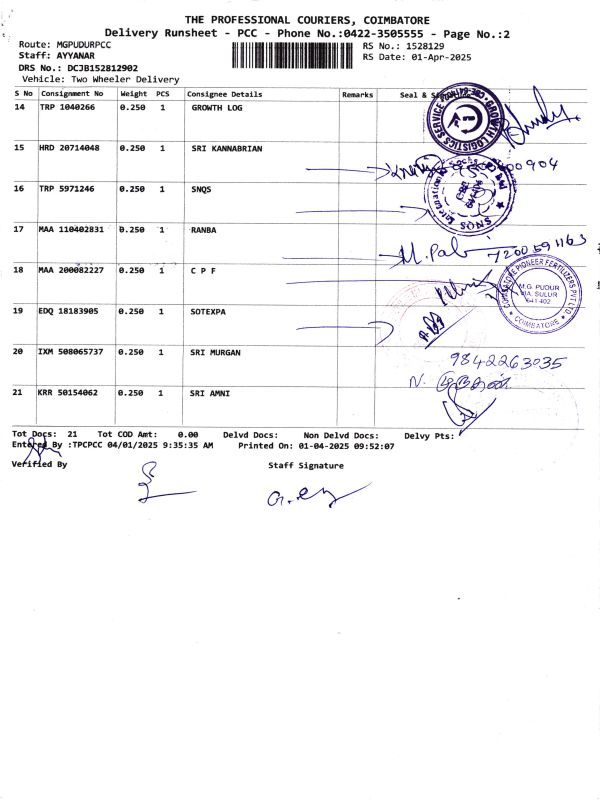 THE PROFESSIONAL COURIERS, COIMBATORE
Delivery Runsheet - PCC - Phone No.:0422-3505555 - Page No.:2
Route: MGPUDURPCC RS No.: 1528129
Staff: AYYANAR RS Date: 01-Apr-2025
DRS No.: DCJB152812902
Vehicle: Two Wheeler Delivery
S No Consignment No Weight PCS Consignee Details Remarks Seal &
14 TRP 1040266 0.250 1 GROWTH LOG
GROWTH LOGISTICS SERVICE
15 HRD 20714048 0.250 1 SRI KANNABRIAN
16 TRP 5971246 0.250 1 SNQS
SNQS
17 MAA 110402831 0.250 1 RANBA
7200591163
18 MAA 200082227 0.250 1 C P F
COIMBATORE PIONEER FERTILIZERS PVT LTD
M.G. PUDUR
VIA. SULUR
641 402
COIMBATORE
19 EDQ 18183905 0.250 1 SOTEXPA
20 IXM 508065737 0.250 1 SRI MURGAN
9842263035
21 KRR 50154062 0.250 1 SRI AMNI
Tot Docs: 21 Tot COD Amt: 0.00 Delvd Docs: Non Delvd Docs: Delvy Pts:
Entered By :TPCPCC 04/01/2025 9:35:35 AM Printed On: 01-04-2025 09:52:07
Verified By Staff Signature